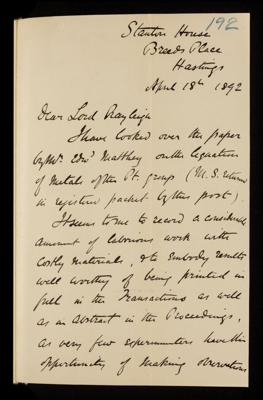 192
Stanton House
Breeds Place
Hastings
April 18th 1892
Dear Lord Rayleigh
I have looked over the paper
by Mr. Edwd Matthey on the liquation
of metals of the Pt. group (M.S. return
in registered packet by this post).
It seems to me to record a considerable
amount of laborious work with
costly materials, & to embody results
well worthy of being printed in
full in the Transactions as well
as an Abstract in the Proceedings,
as very few experimenters have the
opportunity of making observations